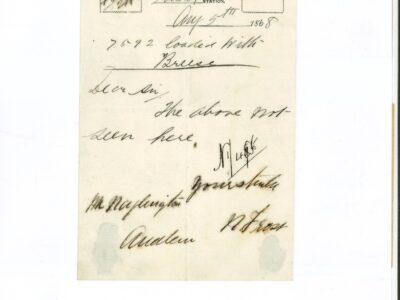 STATION,
Aug 5th 1868
7592 loaded with
Breese
Dear Sir,
The above not
seen here
Yours truly
Mr Waplington
Audlem
N Frost